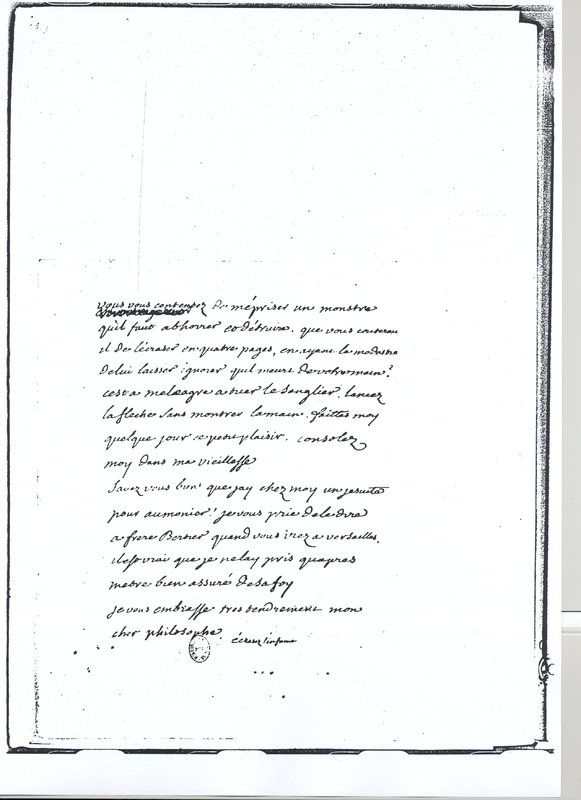 vous vous contentez De mépriser un monstre
qu'il faut abhorrer et détruire. que vous couterau
il De lécraser en quatre pages, en ayant la modestie
de lui laisser ignorer quil meurt de votre main?
cest a meleagre a tuer le sanglier. lancez
la fleche sans montrer la main. faittes moy
quelque jour ce petit plaisir. consolez
moy dans ma vieillesse
savez vous bien que jay chez moy un jesuite
pour aumonier? je vous prie de le dire
a frere Bertier quand vous irez a versailles.
il est vrai que je ne lay pris quapres
metre bien assuré de sa foy
je vous embrasse tres tendrement mon
cher philosophe
écrasez l'infame